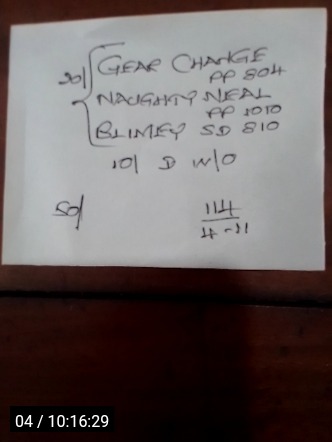 20/ { GEAR CHANGE
PP 804
NAUGHTY NEAL
PP 1010
BLIMEY SD 810
10/ D W/O
50/
114
4-11
04 / 10:16:29